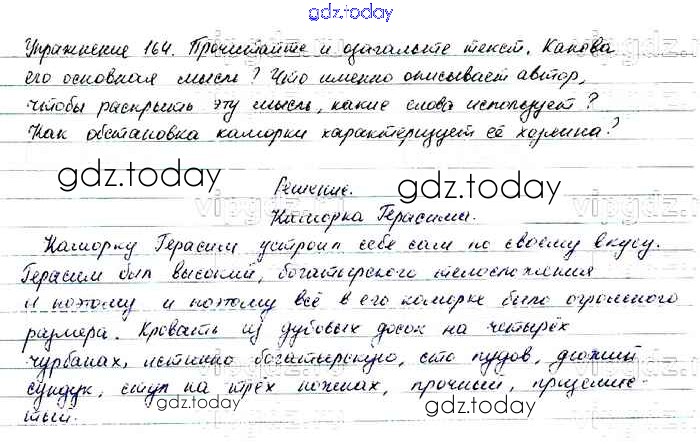 gdz.today
Упражнение 164. Прочитайте и озаглавьте текст. Какова
его основная мысль? Что именно описывает автор,
чтобы раскрыть эту мысль, какие слова использует?
Как обстановка каморки характеризует её хозяина?
gdz.today
gdz.today
Решение.
Каморка Герасима.
Каморку Герасим устроил себе сам по своему вкусу.
Герасим был высокий, богатырского телосложения
и поэтому и поэтому всё в его каморке было огромного
размера. Кровать из дубовых досок на четырёх
чурбанах, истинно богатырскую, сто пудов, дюжий
сундук, стул на трёх ножках, прочный, приземис-
тый.
gdz.today
gdz.today